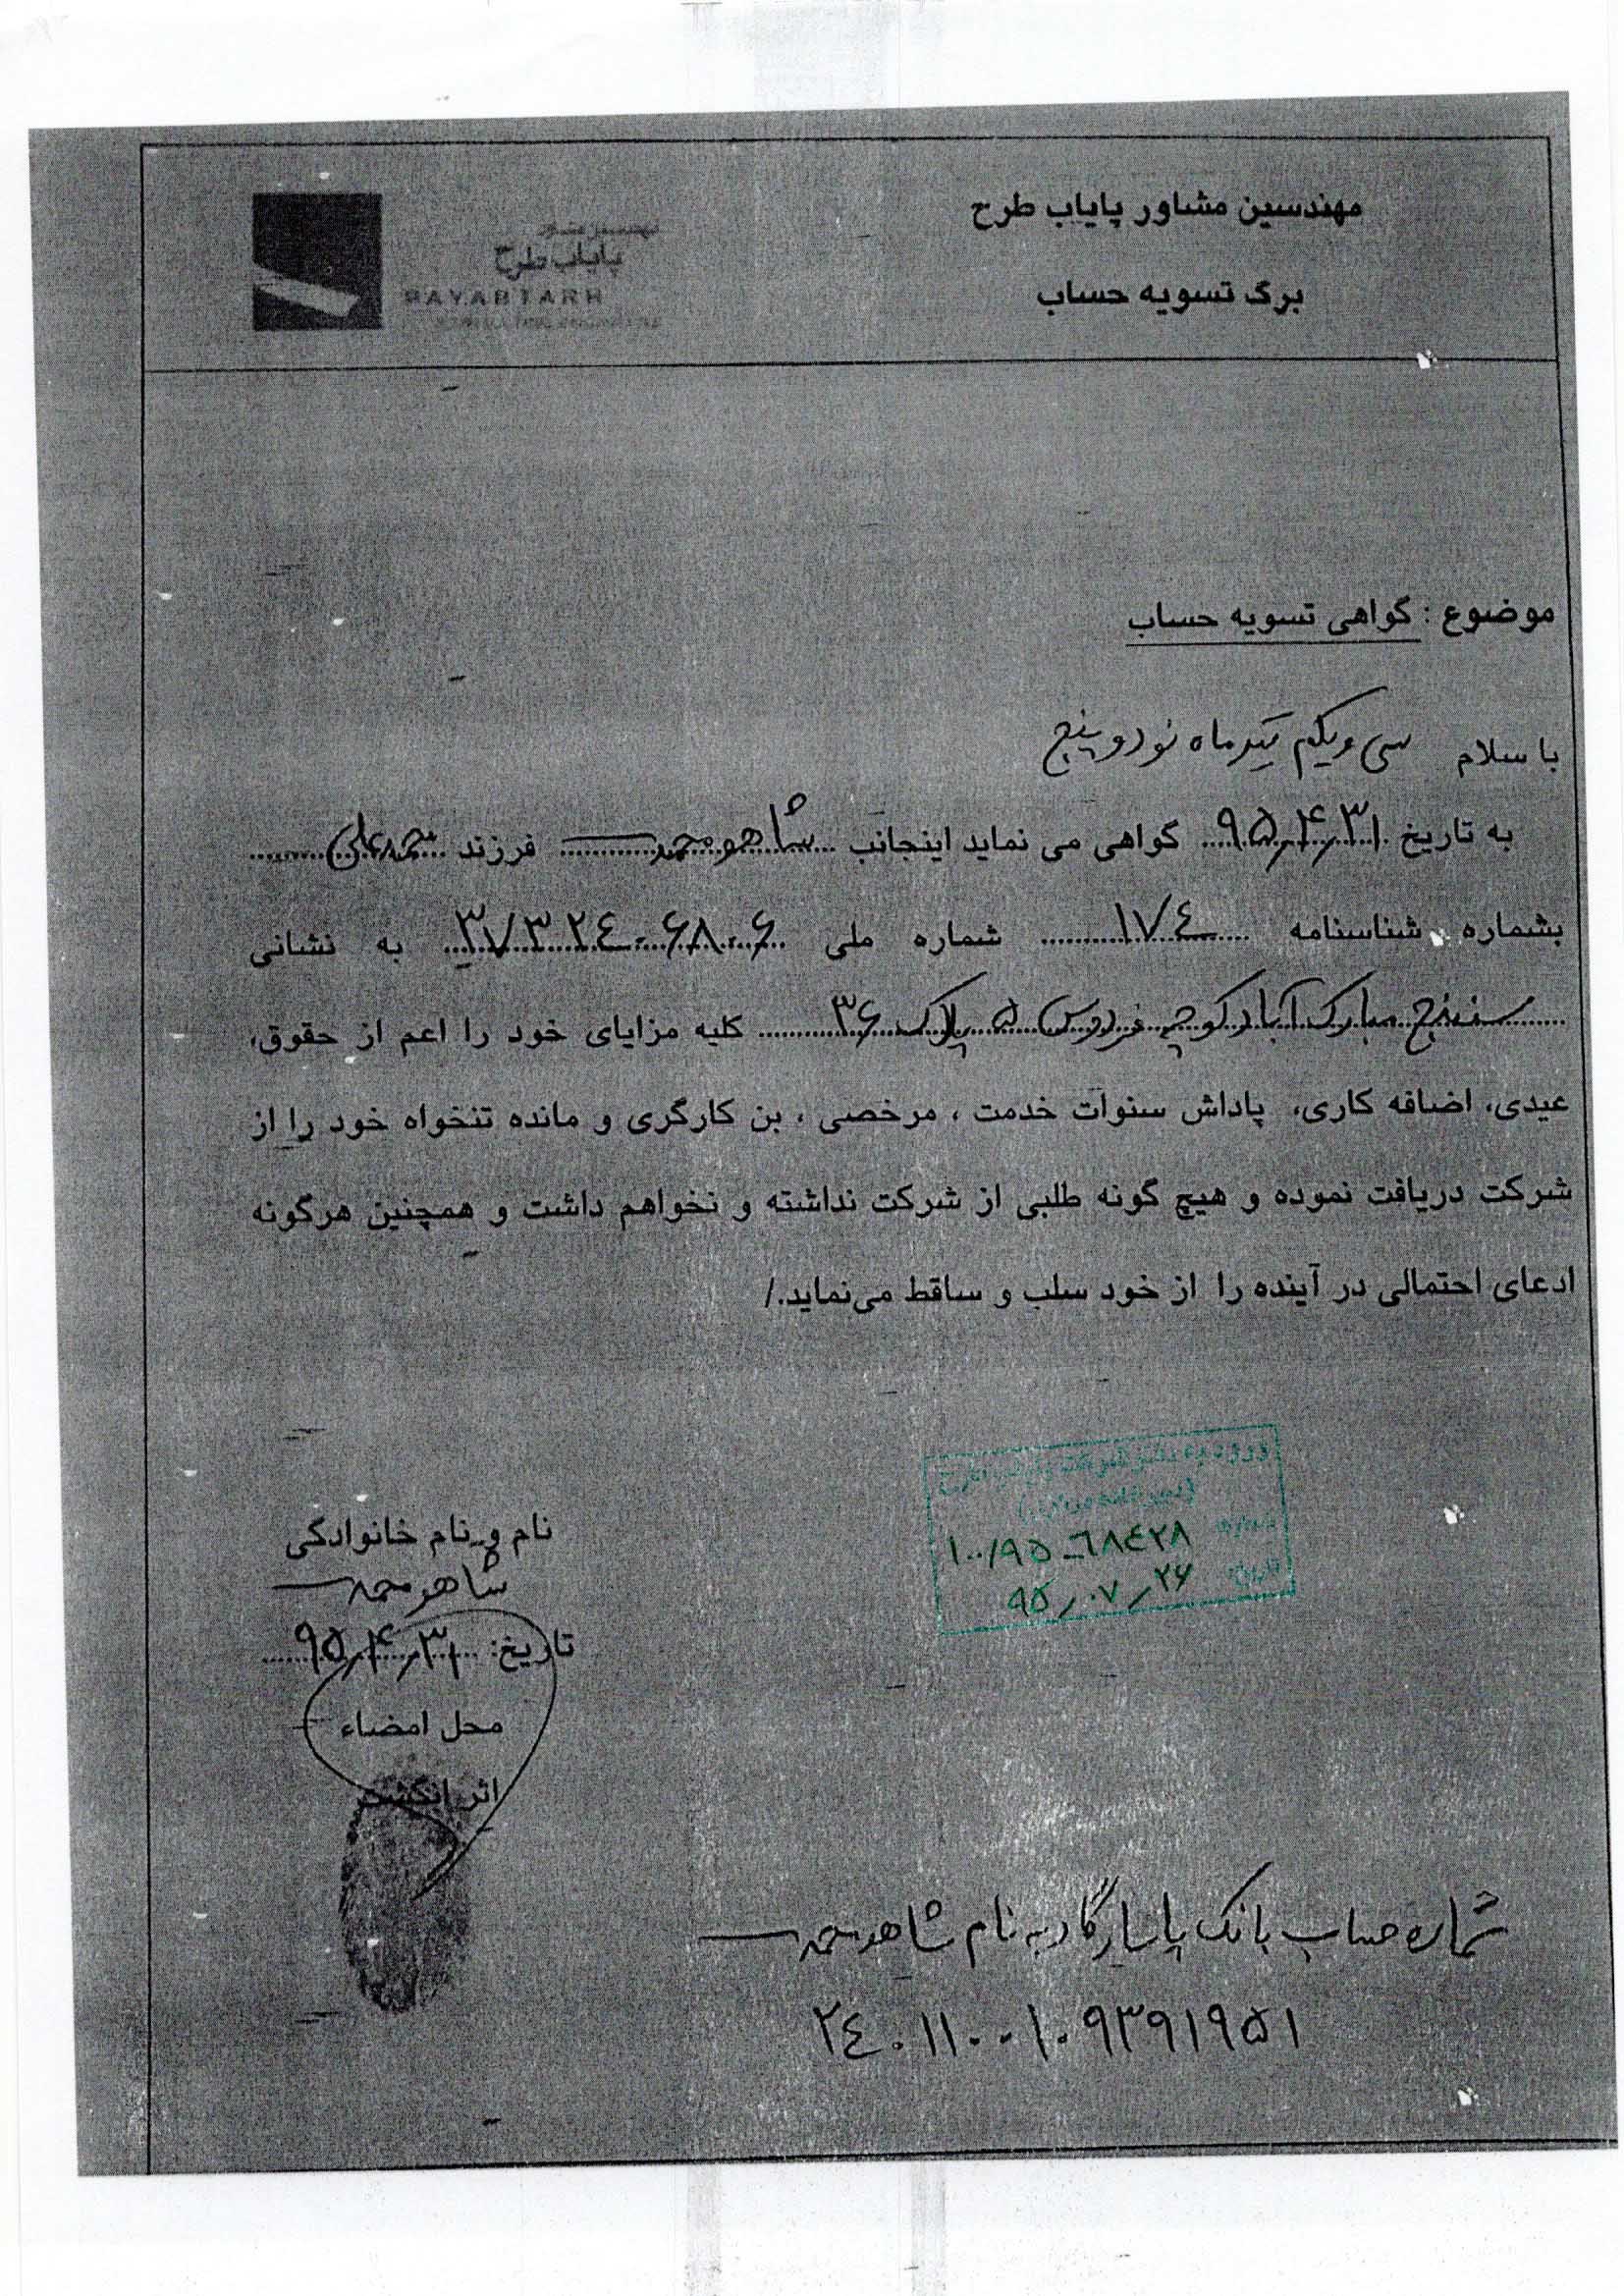 مهندسین مشاور پایاب طرح
برگ تسویه حساب
مهندسین مشاور
پایاب طرح
PAYABTARH
موضوع : گواهی تسویه حساب
با سلام سی و یکم تیر ماه نود و پنج
به تاریخ ۹۵٫۴٫۳۱ گواهی می نماید اینجانب شاهو محمد فرزند محمدعلی
بشماره شناسنامه ۱۷۴ شماره ملی به نشانی
سنندج مبارک آباد کوچه فردوس ۵ پلاک ۳۶ کلیه مزایای خود را اعم از حقوق،
عیدی، اضافه کاری، پاداش سنوات خدمت ، مرخصی ، بن کارگری و مانده تنخواه خود را از
شرکت دریافت نموده و هیچ گونه طلبی از شرکت نداشته و نخواهم داشت و همچنین هرگونه
ادعای احتمالی در آینده را از خود سلب و ساقط می‌نماید./
شماره ۱۰۰/۹۵-۶۸۴۲۸
تاریخ ۹۵٫۰۷٫۲۶
نام و نام خانوادگی
شاهو محمد
تاریخ: ۹۵٫۴٫۳۱
محل امضاء
اثر انگشت
شماره حساب بانک پاسارگاد به نام شاهو محمد
۲۴۰۱۱۰۰۱۰۹۳۹۱۹۵۱